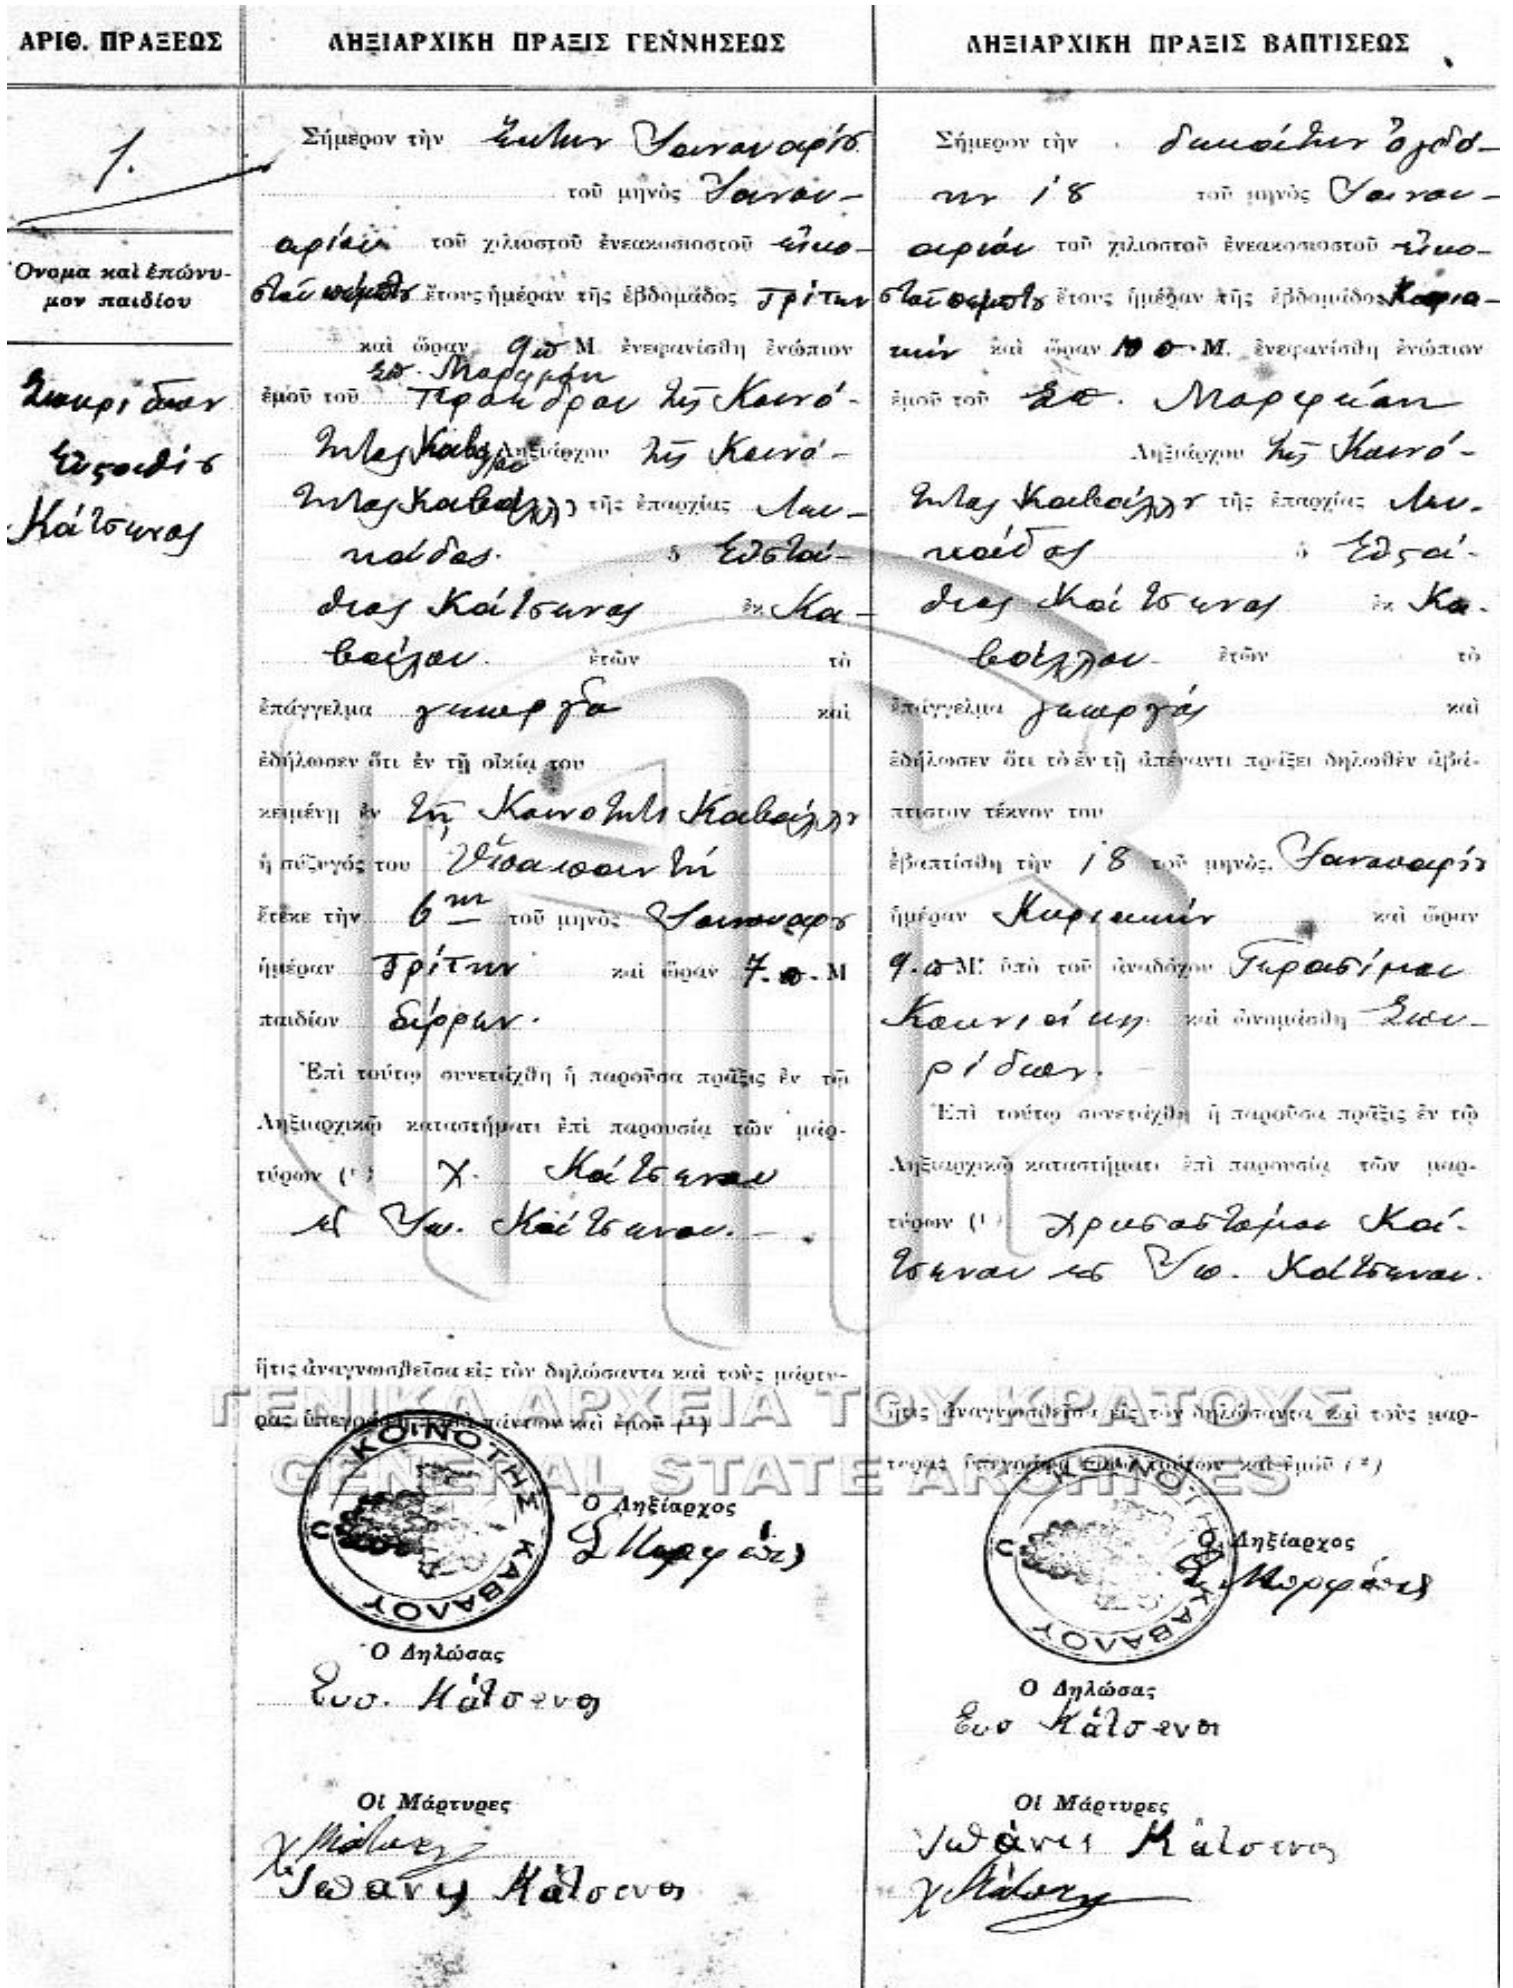 ΑΡΙΘ. ΠΡΑΞΕΩΣ
1.
Ὄνομα καὶ ἐπώνυ-
μον παιδίου
Σπυρίδων
Εὐσταθίου
Κάτσενος
ΛΗΞΙΑΡΧΙΚΗ ΠΡΑΞΙΣ ΓΕΝΝΗΣΕΩΣ
Σήμερον τὴν ἕκτην Ἰανουαρίου
τοῦ μηνὸς Ἰανου-
αρίου τοῦ χιλιοστοῦ ἐνεακοσιοστοῦ εἰκο-
στοῦ πέμπτου ἔτους ἡμέραν τῆς ἑβδομάδος Τρίτην
καὶ ὥραν 9 π Μ. ἐνεφανίσθη ἐνώπιον
Σπ.
ἐμοῦ τοῦ Προέδρου τῆς Κοινό-
τητος Καβάλου Ληξιάρχου τῆς Κοινό-
τητος Καβάλλου τῆς ἐπαρχίας Λευ-
κάδος. ὁ Εὐστά-
θιος Κάτσενος ἐκ Κα-
βάλου. ἐτῶν τὸ
ἐπάγγελμα γεωργὸς καὶ
ἐδήλωσεν ὅτι ἐν τῇ οἰκίᾳ του
κειμένῃ ἐν τῇ Κοινότητι Καβάλλου
ἡ σύζυγός του Ὑπαπαντὴ
ἔτεκε τὴν 6ην τοῦ μηνὸς Ἰανουαρίου
ἡμέραν Τρίτην καὶ ὥραν 7. π. Μ
παιδίον ἄρρεν.
Ἐπὶ τούτῳ συνετάχθη ἡ παροῦσα πρᾶξις ἐν τῷ
Ληξιαρχικῷ καταστήματι ἐπὶ παρουσίᾳ τῶν μαρ-
τύρων (¹) Χ. Κάτσενου
κὲ Ἰω. Κάτσενου.
ἥτις ἀναγνωσθεῖσα εἰς τὸν δηλώσαντα καὶ τοὺς μάρτυ-
ρας ὑπεγράφη πάντων καὶ ἐμοῦ (²)
ΚΟΙΝΟΤΗΣ ΚΑΒΑΛΟΥ
Ὁ Ληξίαρχος
Ὁ Δηλώσας
Ευσ. Κάτσενος
Οἱ Μάρτυρες
Ιωάνης Κάτσενος
ΛΗΞΙΑΡΧΙΚΗ ΠΡΑΞΙΣ ΒΑΠΤΙΣΕΩΣ
Σήμερον τὴν δεκάτην ὀγδό-
ην 18 τοῦ μηνὸς Ἰανου-
αρίου τοῦ χιλιοστοῦ ἐνεακοσιοστοῦ εἰκο-
στοῦ πέμπτου ἔτους ἡμέραν τῆς ἑβδομάδος Κυρια-
κὴν καὶ ὥραν 10 π. Μ. ἐνεφανίσθη ἐνώπιον
ἐμοῦ τοῦ Σπ.
Ληξιάρχου τῆς Κοινό-
τητος Καβάλλου τῆς ἐπαρχίας Λευ-
κάδος ὁ Εὐστά-
θιος Κάτσενος ἐκ Κα-
βάλλου ἐτῶν τὸ
ἐπάγγελμα γεωργὸς καὶ
ἐδήλωσεν ὅτι τὸ ἐν τῇ ἀπέναντι πράξει δηλωθὲν ἀβά-
πτιστον τέκνον του
ἐβαπτίσθη τὴν 18 τοῦ μηνὸς Ἰανουαρίου
ἡμέραν Κυριακὴν καὶ ὥραν
9. π Μ. ὑπὸ τοῦ ἀναδόχου Γερασίμου
καὶ ὠνομάσθη Σπυ-
ρίδων.
Ἐπὶ τούτῳ συνετάχθη ἡ παροῦσα πρᾶξις ἐν τῷ
Ληξιαρχικῷ καταστήματι ἐπὶ παρουσίᾳ τῶν μαρ-
τύρων (¹) Χρυσοστόμου Κά-
τσενου κὲ Ἰω. Κάτσενου.
ἥτις ἀναγνωσθεῖσα εἰς τὸν δηλώσαντα καὶ τοὺς μάρ-
τυρας ὑπεγράφη τούτων καὶ ἐμοῦ (²)
ΚΟΙΝΟΤΗΣ ΚΑΒΑΛΟΥ
Ὁ Ληξίαρχος
Ὁ Δηλώσας
Ευσ Κάτσενος
Οἱ Μάρτυρες
Ιωάνις Κάτσενος
ΓΕΝΙΚΑ ΑΡΧΕΙΑ ΤΟΥ ΚΡΑΤΟΥΣ
GENERAL STATE ARCHIVES